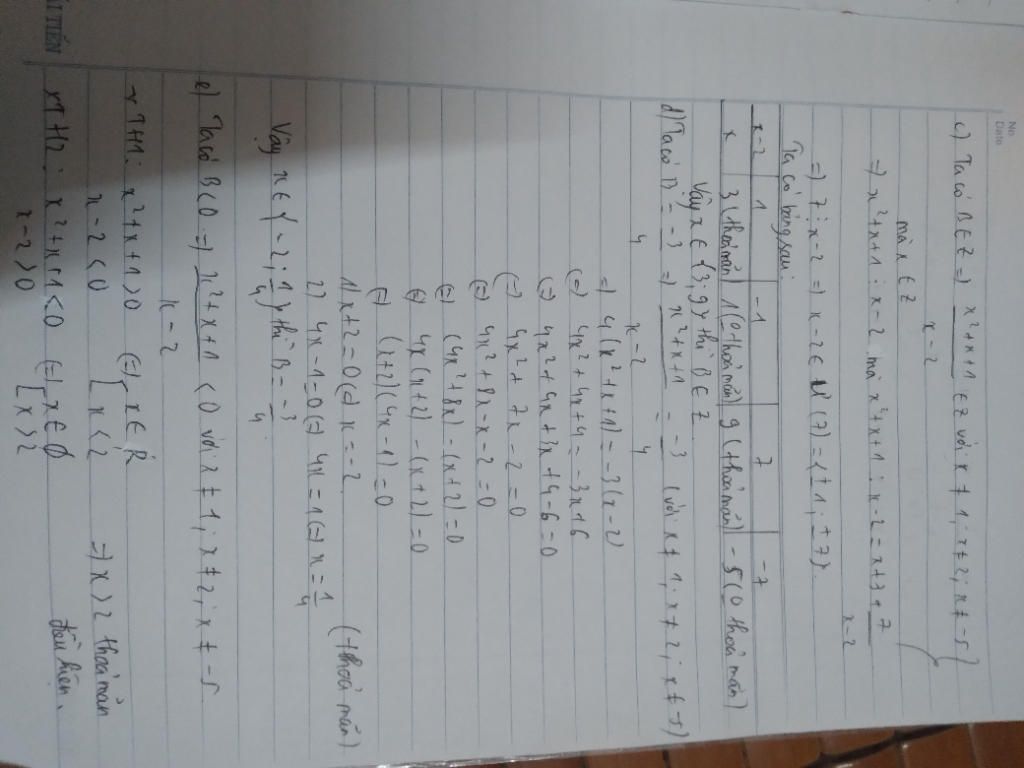 No.
Date
c) Ta có B ∈ Z => x²+x+1 / x-2 ∈ Z với x ≠ 1; x ≠ 2; x ≠ -5
mà x ∈ Z
=> x²+x+1 ⋮ x-2 mà x²+x+1 : x-2 = x+3 + 7/x-2
=> 7 ⋮ x-2 => x-2 ∈ Ư(7) = {±1; ±7}.
Ta có bảng sau:
x-2 | 1 | -1 | 7 | -7
x | 3 (thoả mãn) | 1 (0 thoả mãn) | 9 (thoả mãn) | -5 (0 thoả mãn)
Vậy x ∈ {3; 9} thì B ∈ Z.
d) Ta có B = -3/4 => x²+x+1 / x-2 = -3/4 (với x ≠ 1; x ≠ 2; x ≠ -5)
=> 4(x²+x+1) = -3(x-2)
(=) 4x²+4x+4 = -3x+6
(=) 4x²+4x+3x+4-6=0
(=) 4x²+7x-2=0
(=) 4x²+8x-x-2=0
(=) (4x²+8x)-(x+2)=0
(=) 4x(x+2)-(x+2)=0
(=) (x+2)(4x-1)=0
1) x+2=0 (=) x=-2
2) 4x-1=0 (=) 4x=1 (=) x=1/4 (thoả mãn)
Vậy x ∈ {-2; 1/4} thì B = -3/4.
e) Ta có B<0 => x²+x+1 / x-2 < 0 với x ≠ 1; x ≠ 2; x ≠ -5
+ TH1: x²+x+1>0 (=) [ x ∈ R
x-2<0 [ x<2 => x>2 thoả mãn
+ TH2: x²+x+1<0 (=) [ x ∈ ∅ điều kiện.
x-2>0 [ x>2
TIẾN